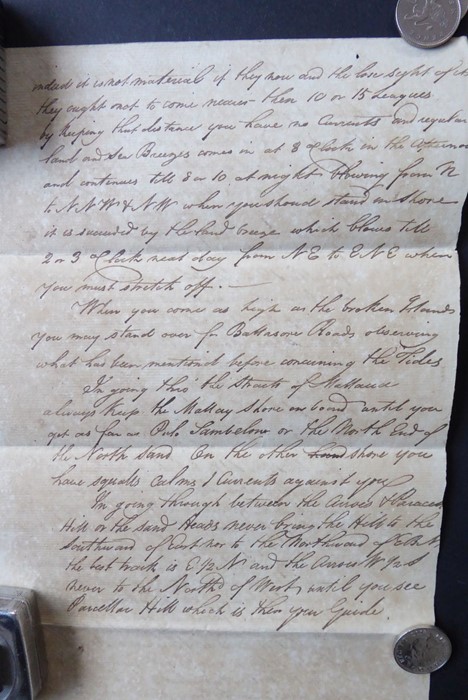 indeed it is not material if they now and then lose sight of it
they ought not to come nearer then 10 or 15 Leagues
by keeping that distance you have no Currents and regular
land and Sea Breezes comes in at 8 oClock in the
and continues till 8 or 10 at night blowing from N
to NNW & NW when you should stand in Shore
it is succeeded by the land breeze which blows till
2 or 3 oClock next day from NE to ENE when
you must stretch off. —
When you come as high as the broken Islands
you may stand over for Roads observing
what has been mentioned before concerning the Tides
In going thro' the Straits of Mallacca
always keep the Mallay Shore on board until you
get as far as Pulo Sambelone or the North End of
the North Sand On the other shore you
have squalls Calms & Currents against you
In going through between the Arroes & Parcelar
Hill or the Sand Heads never bring the Hill to the
Southward of East nor to the Northward of EBN
the best track is E½N and the Arroes W½S
never to the North'd of West until you see
Parcellar Hill which is then your Guide.